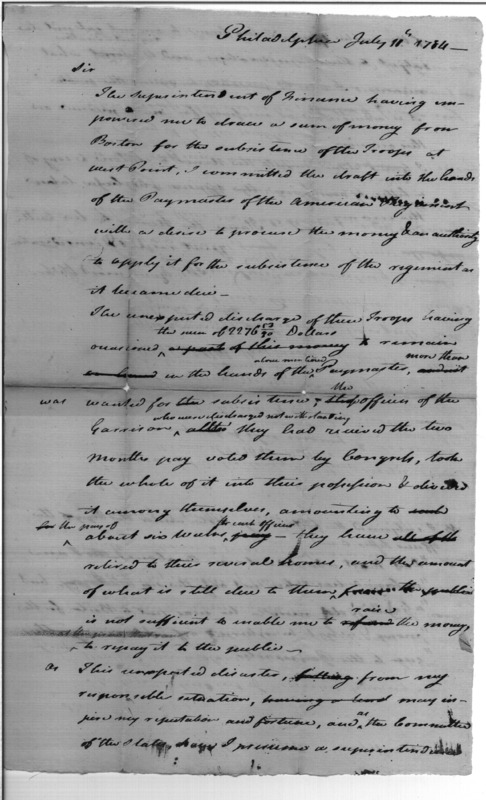 Philadelphia July 11th 1784 —
Sir
The Superintendent of Finance having im-
powered me to draw a sum of money from
Boston for the subsistence of the Troops at
West Point, I committed the draft into the hands
of the Paymaster of the American Regiment
with a desire to procure the money & an authority
to apply it for the subsistence of the regiment as
it became due —
The unexpected discharge of these Troops having
the sum of 2276 Dollars
occasioned a part of this money to remain
above mentioned more than
in the hands of the Paymaster,
was wanted for subsistence, the Officers of the
who were discharged notwithstanding
Garrison, they had received the two
Months pay voted them by Congress, took
the whole of it into their possession & divided
it among themselves, amounting to
for the pay of to each officer
about six weeks pay — they have
retired to their several homes, and the amount
of what is still due to them from the public
raise
is not sufficient to enable me to refund the money
to repay it to the public —
As This unexpected disaster, falling from my
responsible situation, having a may in-
jure my reputation and fortune, and as the Committee
of the States, I presume a superintend